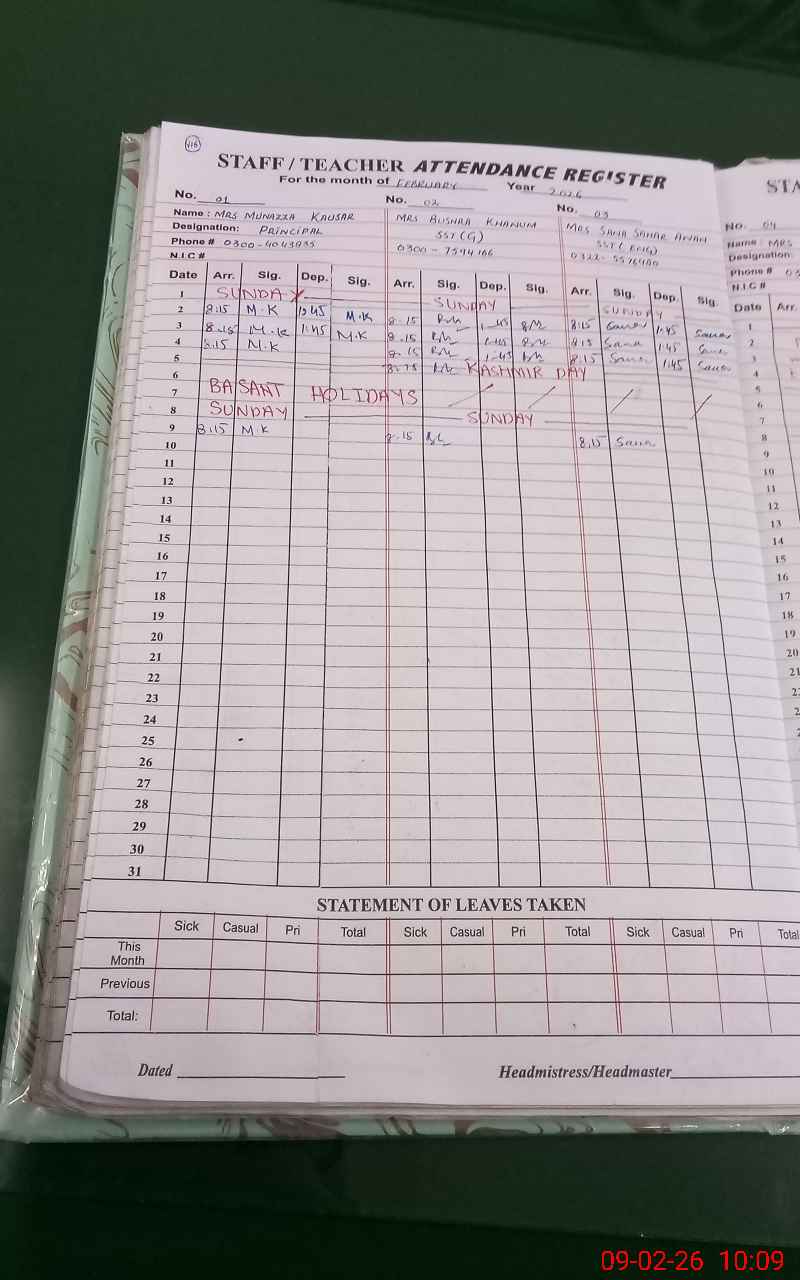 118
STAFF / TEACHER ATTENDANCE REGISTER
For the month of FEBRUARY Year 2026
No. 01 No. 02 No. 03
Name : MRS MUNAZZA KAUSAR MRS BUSHRA KHANUM MRS SANA SAHAR AWAN
Designation: PRINCIPAL SST (G) SST (ENG)
Phone # 0300-4043935 0300-7594166 0322-5576480
N.I.C #
Date Arr. Sig. Dep. Sig. Arr. Sig. Dep. Sig. Arr. Sig. Dep. Sig.
1 SUNDAY SUNDAY SUNDAY
2 8.15 M.K 1:45 M.K 8.15 1.45 8.15 Sana 1.45 Sana
3 8.15 M.K 1:45 M.K 8.15 1.45 8.15 Sana 1.45 Sana
4 8.15 M.K 8.15 1.45 8.15 Sana 1.45 Sana
5 8.15 KASHMIR DAY
6
7 BASANT HOLIDAYS
8 SUNDAY SUNDAY
9 8.15 M.K 8.15 8.15 Sana
10
11
12
13
14
15
16
17
18
19
20
21
22
23
24
25
26
27
28
29
30
31
STATEMENT OF LEAVES TAKEN
Sick Casual Pri Total Sick Casual Pri Total Sick Casual Pri Total
This Month
Previous
Total:
Dated Headmistress/Headmaster
STA
No. 04
Name : MRS
Designation:
Phone #
N.I.C #
Date Arr.
1
2
3
4
5
6
7
8
9
10
11
12
13
14
15
16
17
18
19
20
21
09-02-26 10:09